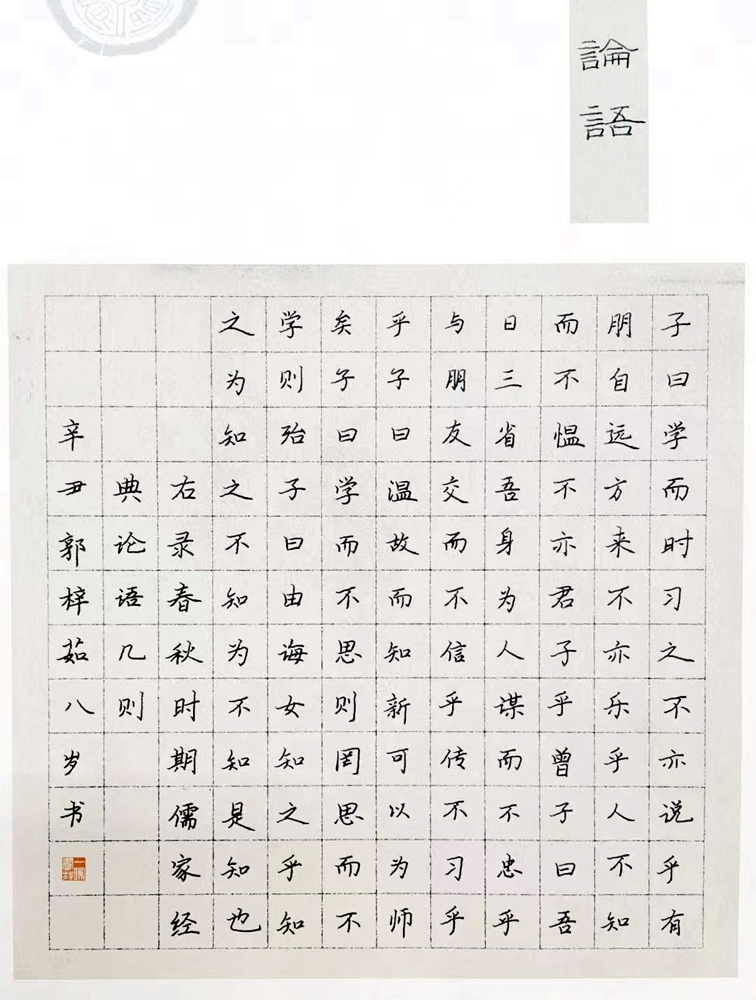 論語
子曰学而时习之不亦说乎有
朋自远方来不亦乐乎人不知
而不愠不亦君子乎曾子曰吾
日三省吾身为人谋而不忠乎
与朋友交而不信乎传不习乎
乎子曰温故而知新可以为师
矣子曰学而不思则罔思而不
学则殆子曰由诲女知之乎知
之为知之不知为不知是知也
右录春秋时期儒家经
典论语几则
辛丑郭梓茹八岁书